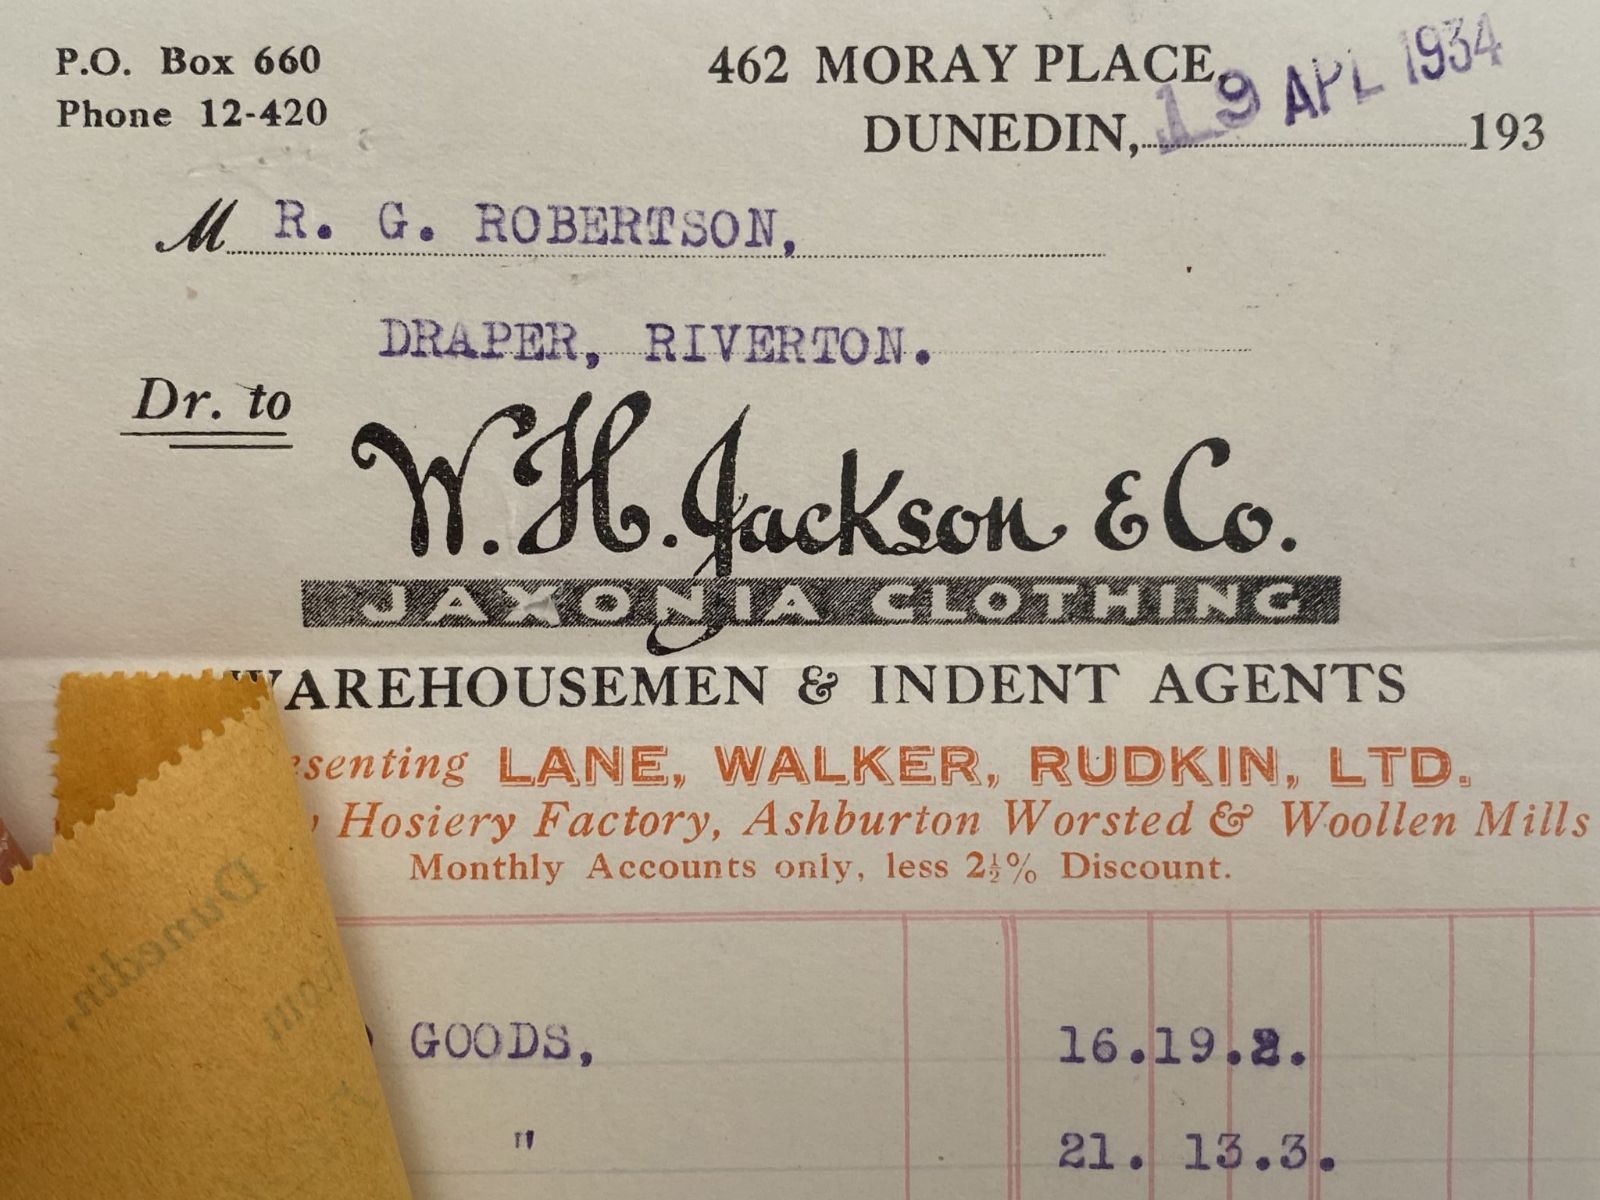 P.O. Box 660
Phone 12-420
462 MORAY PLACE,
DUNEDIN, 19 APL 1934 193
M R. G. ROBERTSON,
DRAPER, RIVERTON.
Dr. to
W. H. Jackson & Co.
JAXONIA CLOTHING
WAREHOUSEMEN & INDENT AGENTS
esenting LANE, WALKER, RUDKIN, LTD.
Hosiery Factory, Ashburton Worsted & Woollen Mills
Monthly Accounts only, less 2½% Discount.
Dunedin,
GOODS, 16.19.2.
" 21. 13.3.